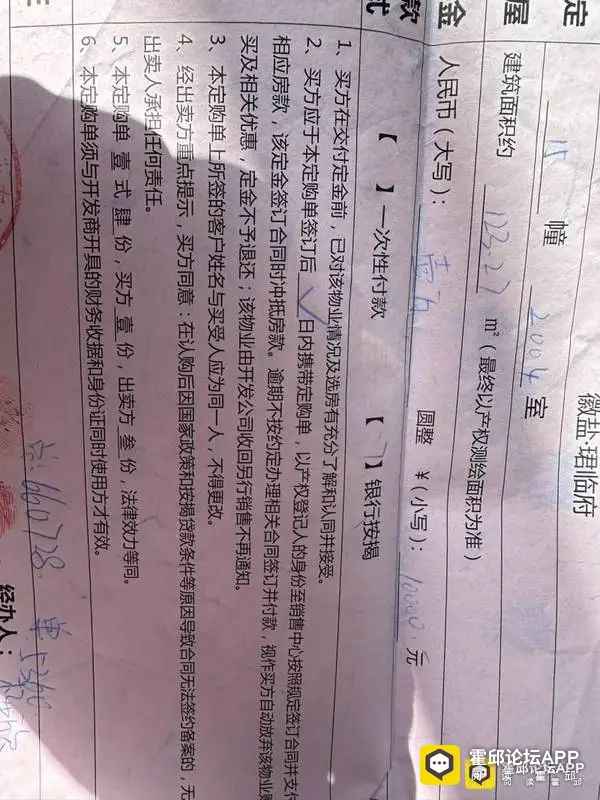 定
徽盐·珺临府
屋
15 幢 2004 室
建筑面积约 123.27 m²（最终以产权测绘面积为准）
金
人民币（大写）： 壹万 圆整 ￥（小写）： 10000. 元
款
式
【 】一次性付款 【 】银行按揭
1、买方在交付定金前，已对该物业情况及选房有充分了解和认同并接受。
2、买方应于本定购单签订后 日内携带定购单，以产权登记人的身份至销售中心按照规定签订合同并支付
相应房款，该定金签订合同时冲抵房款。逾期不按约定办理相关合同签订并付款，视作买方自动放弃该物业购
买及相关优惠，定金不予退还；该物业由开发公司收回另行销售不再通知。
3、本定购单上所签的客户姓名与买受人应为同一人，不得更改。
4、经出卖方重点提示，买方同意：在认购后因国家政策和按揭贷款条件等原因导致合同无法签约备案的，无
出卖人承担任何责任。
5、本定购单 壹 式 肆 份，买方 壹 份，出卖方 叁 份，法律效力等同。
6、本定购单须与开发商开具的财务收据和身份证同时使用方才有效。
660728.
经办人：
霍邱论坛APP
霍邱论坛APP